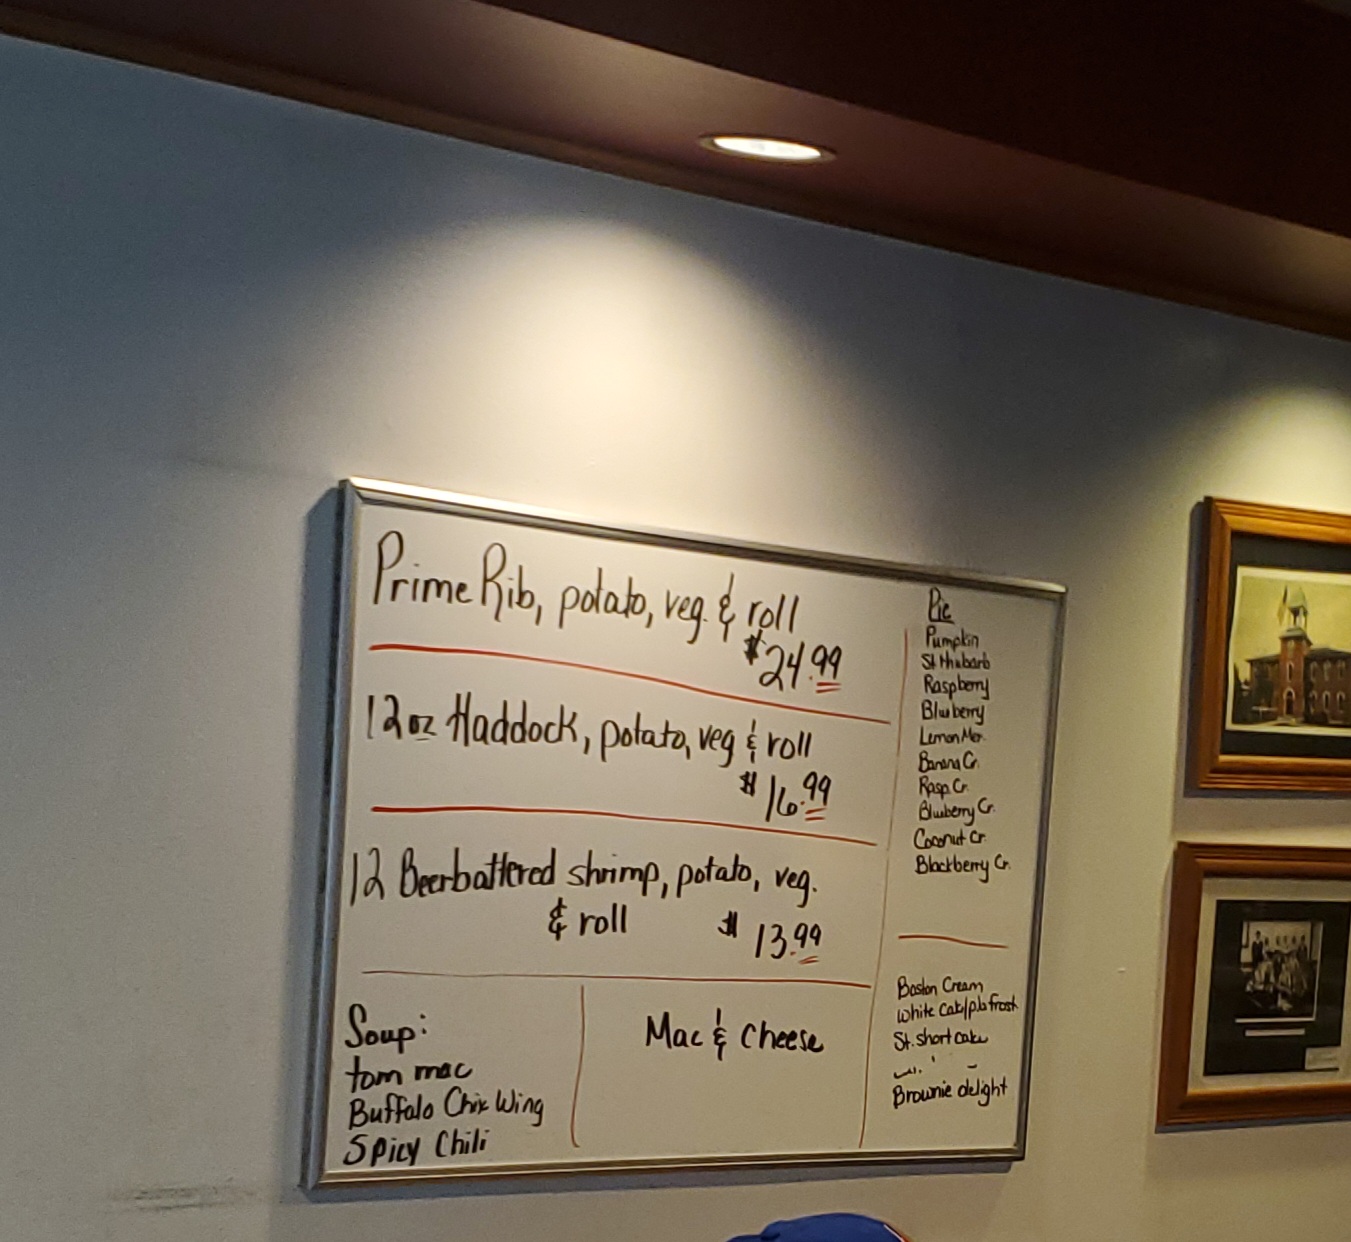 Prime Rib, potato, veg. & roll
$24.99
12oz Haddock, potato, veg & roll
$16.99
12 Beerbattered shrimp, potato, veg.
& roll $13.99
Soup:
tom mac
Buffalo Chix Wing
Spicy Chili
Mac & Cheese
Pie
Pumpkin
St. Rhubarb
Raspberry
Blueberry
Lemon Mer.
Banana Cr.
Rasp. Cr.
Blueberry Cr.
Coconut Cr.
Blackberry Cr.
Boston Cream
White Cake/pb frost
St. short cake
Brownie delight